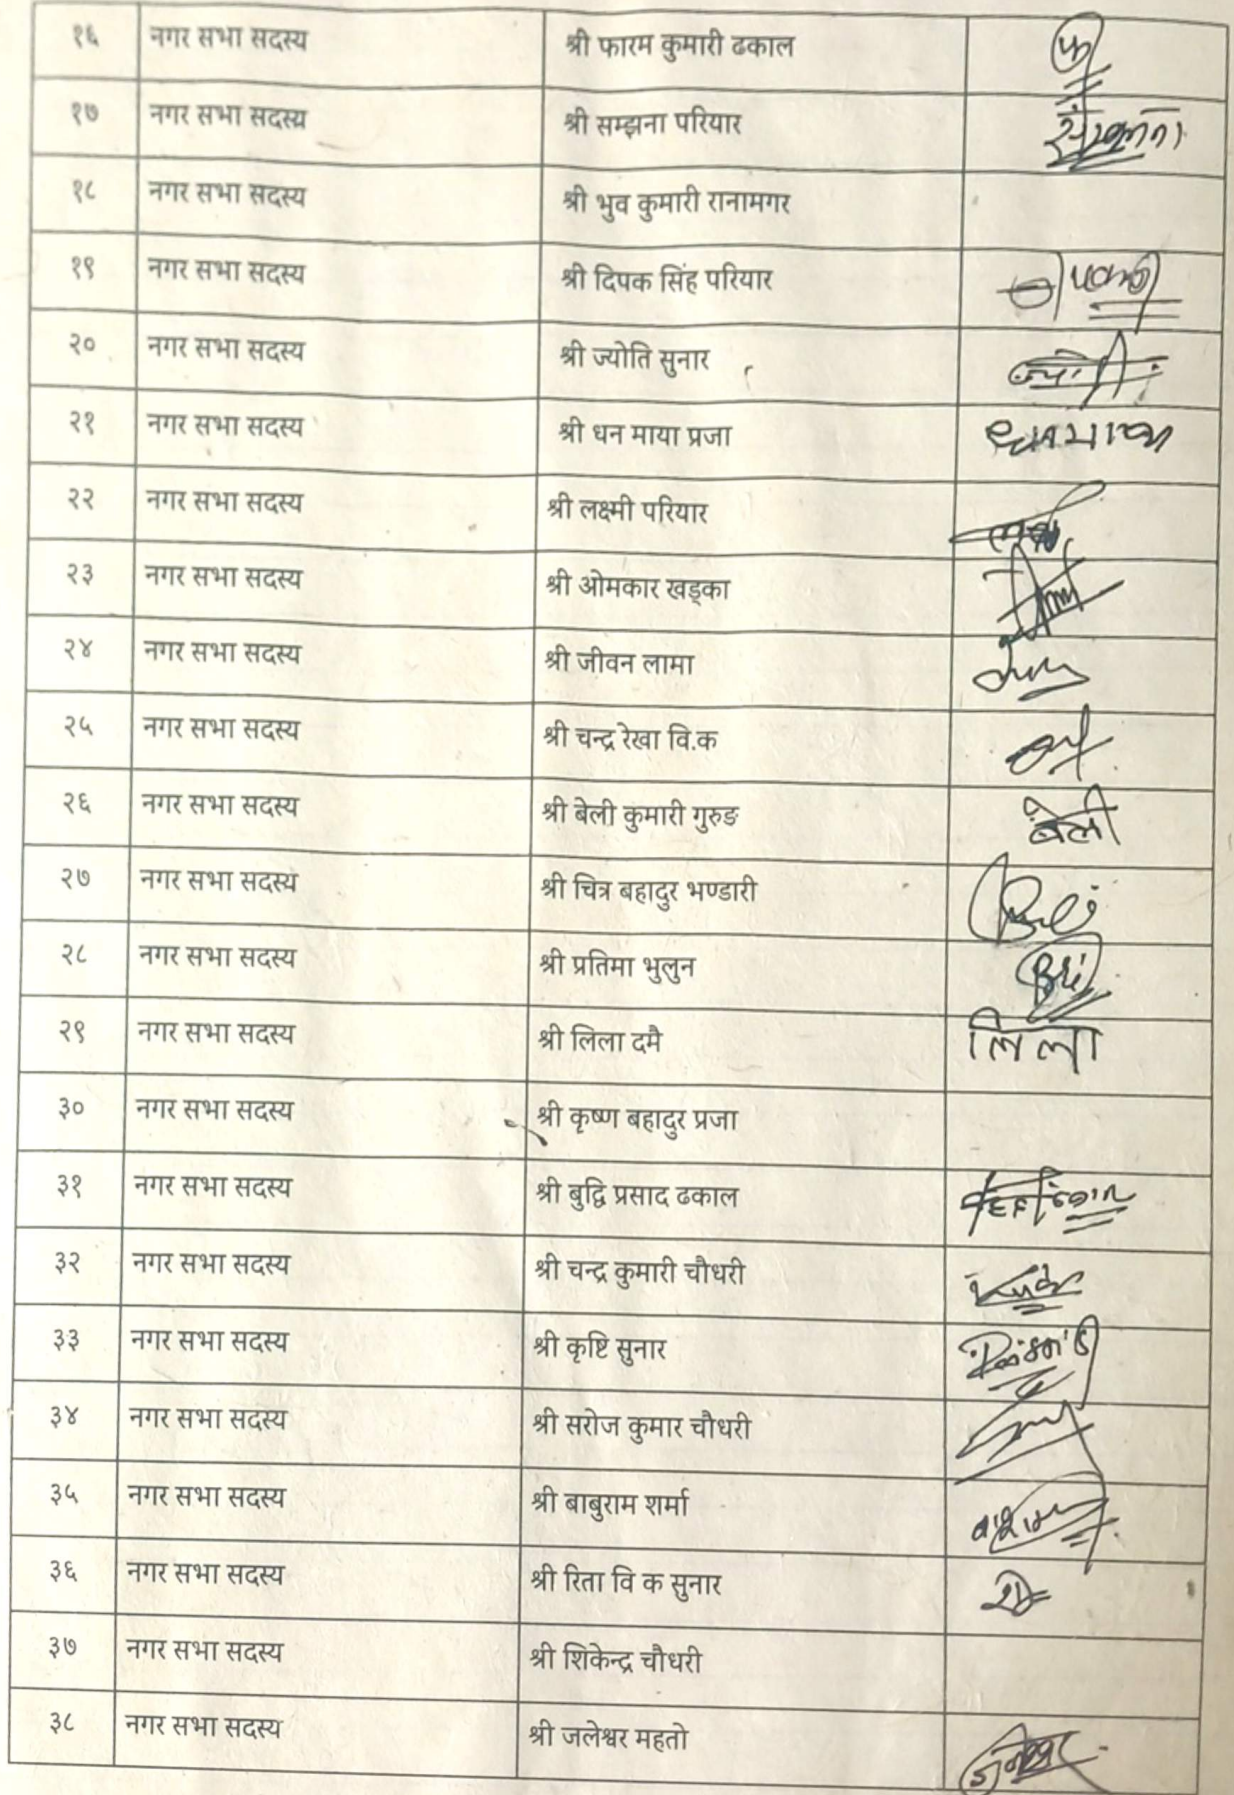 १६ नगर सभा सदस्य श्री फारम कुमारी ढकाल
१७ नगर सभा सदस्य श्री सम्झना परियार
१८ नगर सभा सदस्य श्री भुव कुमारी रानामगर
१९ नगर सभा सदस्य श्री दिपक सिंह परियार
२० नगर सभा सदस्य श्री ज्योति सुनार
२१ नगर सभा सदस्य श्री धन माया प्रजा धनमाया
२२ नगर सभा सदस्य श्री लक्ष्मी परियार
२३ नगर सभा सदस्य श्री ओमकार खड्का
२४ नगर सभा सदस्य श्री जीवन लामा
२५ नगर सभा सदस्य श्री चन्द्र रेखा वि.क
२६ नगर सभा सदस्य श्री बेली कुमारी गुरुङ बेली
२७ नगर सभा सदस्य श्री चित्र बहादुर भण्डारी
२८ नगर सभा सदस्य श्री प्रतिमा भुलुन
२९ नगर सभा सदस्य श्री लिला दमै लिला
३० नगर सभा सदस्य श्री कृष्ण बहादुर प्रजा
३१ नगर सभा सदस्य श्री बुद्धि प्रसाद ढकाल
३२ नगर सभा सदस्य श्री चन्द्र कुमारी चौधरी
३३ नगर सभा सदस्य श्री कृष्टि सुनार
३४ नगर सभा सदस्य श्री सरोज कुमार चौधरी
३५ नगर सभा सदस्य श्री बाबुराम शर्मा
३६ नगर सभा सदस्य श्री रिता वि क सुनार
३७ नगर सभा सदस्य श्री शिकेन्द्र चौधरी
३८ नगर सभा सदस्य श्री जलेश्वर महतो